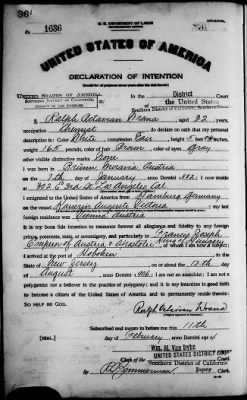 36
No. 1636
U. S. DEPARTMENT OF LABOR
UNITED STATES OF AMERICA
DECLARATION OF INTENTION
UNITED STATES OF AMERICA
SOUTHERN DISTRICT OF CALIFORNIA
COUNTY OF LOS ANGELES
In the District Court
of the United States
Southern District of California, Southern Division
I, Ralph Octavian Wrana, aged 32 years,
occupation Chemist, do declare on oath that my personal
description is: Color White, complexion Fair, height 5 feet inches,
weight 165 pounds, color of hair Brown, color of eyes Gray
other visible distinctive marks None
I was born in Brünn Moravia, Austria
on the day of January, anno Domini 1882; I now reside
at 302 E 3rd St. Los Angeles Cal
I emigrated to the United States of America from Hamburg Germany
on the vessel Kaiserin Auguste Victoria; my last
foreign residence was Vienna, Austria
It is my bona fide intention to renounce forever all allegiance and fidelity to any foreign
prince, potentate, state, or sovereignty, and particularly to Francis Joseph
Emperor of Austria & Apostolic King of Hungary, of whom I am now a subject;
I arrived at the port of Hoboken, in the
State of New Jersey, on or about the 12th day
of August, anno Domini 1906; I am not an anarchist; I am not a
polygamist nor a believer in the practice of polygamy; and it is my intention in good faith
to become a citizen of the United States of America and to permanently reside therein:
SO HELP ME GOD.
Ralph Octavian Wrana
Subscribed and sworn to before me this 11th
[SEAL.] day of February, anno Domini 19
WM. M. VAN DYKE
UNITED STATES DISTRICT COURT
Clerk of the Southern District of California
By Zimmerman, Deputy Clerk.